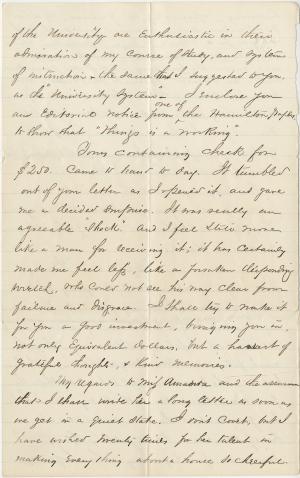 of the University are Enthusiastic in their
admiration of my Course of Study, and System
of instruction - the same that I suggested to you,
as the "University System" I Enclose you
one of
an Editorial notice from the Hamilton papers
to show that "Things is a working".
Yours containing Check for
$250. Came to hand to day. It tumbled
out of your letter as I opened it, and gave
me a decided surprise. It was really an
agreeable "Shock" and I feel still more
like a man for receiving it; it has certainly
made me feel less, like a forsaken desponding
wretch, who could not see his way clear from
failure and disgrace. I shall try to make it
for you a good investment, bringing you in,
not only Equivalent Dollars, but a harvest of
grateful thoughts, & Kind memories.
My regards to Amanda and the assurance
that I shall write her a long letter as soon as
we get in a quiet state. I don't Covet, but I
have wished twenty times for her talent in
making Everything about a house so cheerful